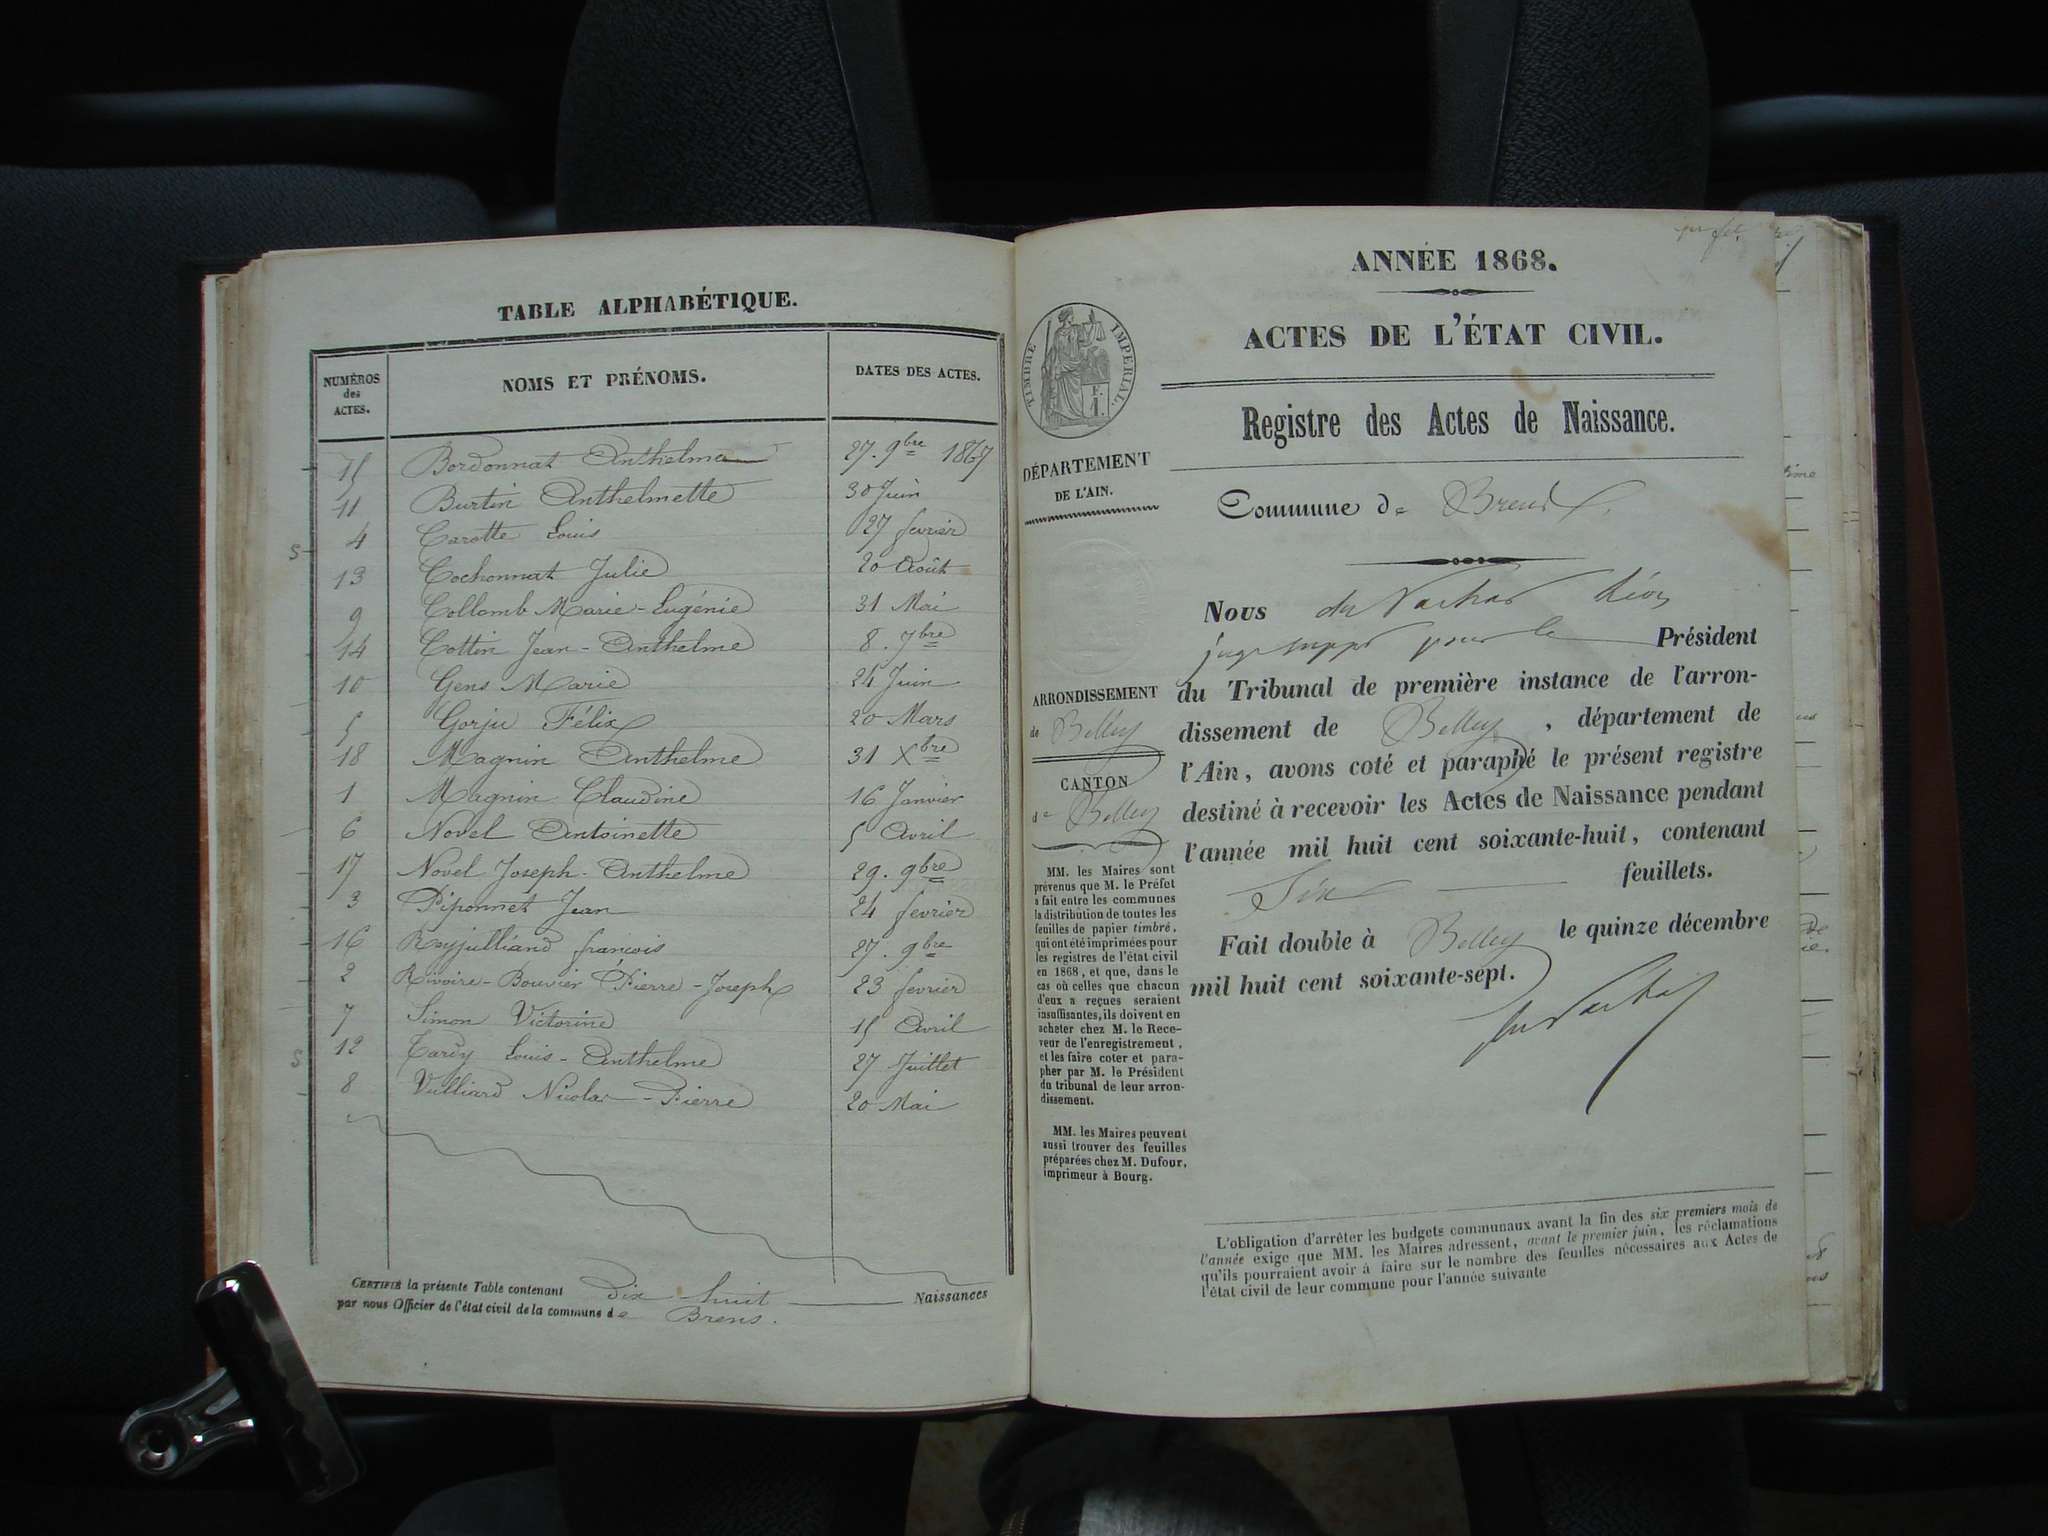 TABLE ALPHABÉTIQUE.
NUMÉROS des ACTES. NOMS ET PRÉNOMS. DATES DES ACTES.
15 Bordonnat Anthelme 27. 9bre 1867
11 Burtin Anthelmette 30 Juin
4 Carotte Louis 27 fevrier
13 Cochonnat Julie 20 Août
9 Collomb Marie-Eugénie 31 Mai
14 Cottin Jean-Anthelme 8. 7bre
10 Gens Marie 24 Juin
5 Gorju Félix 20 Mars
18 Magnin Anthelme 31 Xbre
1 Magnin Claudine 16 Janvier
6 Novel Antoinette 5 Avril
17 Novel Joseph-Anthelme 29. 9bre
3 Piponnet Jean 24 fevrier
16 Reyjulliand françois 27. 9bre
2 Rivoire-Bouvier Pierre-Joseph 23 fevrier
7 Simon Victorine 15 Avril
12 Tardy Louis-Anthelme 27 Juillet
8 Vulliard Nicolas-Pierre 20 Mai
CERTIFIÉ la présente Table contenant Dix huit Naissances
par nous Officier de l'état civil de la commune de Brens.
ANNÉE 1868.
ACTES DE L'ÉTAT CIVIL.
TIMBRE IMPERIAL.
F.
1.
Registre des Actes de Naissance.
DÉPARTEMENT
DE L'AIN.
Commune de Brens.
Nous
juge suppt pour le Président
du Tribunal de première instance de l'arron-
dissement de Belley, département de
l'Ain, avons coté et paraphé le présent registre
destiné à recevoir les Actes de Naissance pendant
l'année mil huit cent soixante-huit, contenant
Six feuillets.
Fait double à Belley le quinze décembre
mil huit cent soixante-sept.
ARRONDISSEMENT
de Belley
CANTON
de Belley
MM. les Maires sont
prévenus que M. le Préfet
a fait entre les communes
la distribution de toutes les
feuilles de papier timbré,
qui ont été imprimées pour
les registres de l'état civil
en 1868, et que, dans le
cas où celles que chacun
d'eux a reçues seraient
insuffisantes, ils doivent en
acheter chez M. le Rece-
veur de l'enregistrement,
et les faire coter et para-
pher par M. le Président
du tribunal de leur arron-
dissement.
MM. les Maires peuvent
aussi trouver des feuilles
préparées chez M. Dufour,
imprimeur à Bourg.
L'obligation d'arrêter les budgets communaux avant la fin des six premiers mois de
l'année exige que MM. les Maires adressent, avant le premier juin, les réclamations
qu'ils pourraient avoir à faire sur le nombre des feuilles nécessaires aux Actes de
l'état civil de leur commune pour l'année suivante